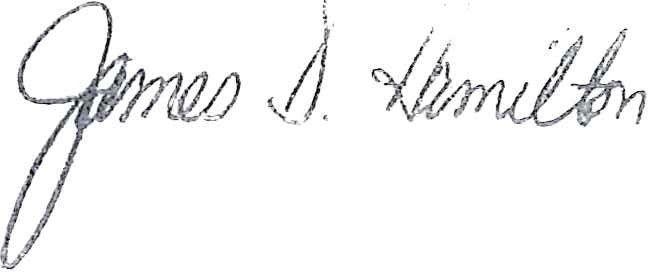 James D. Hamilton